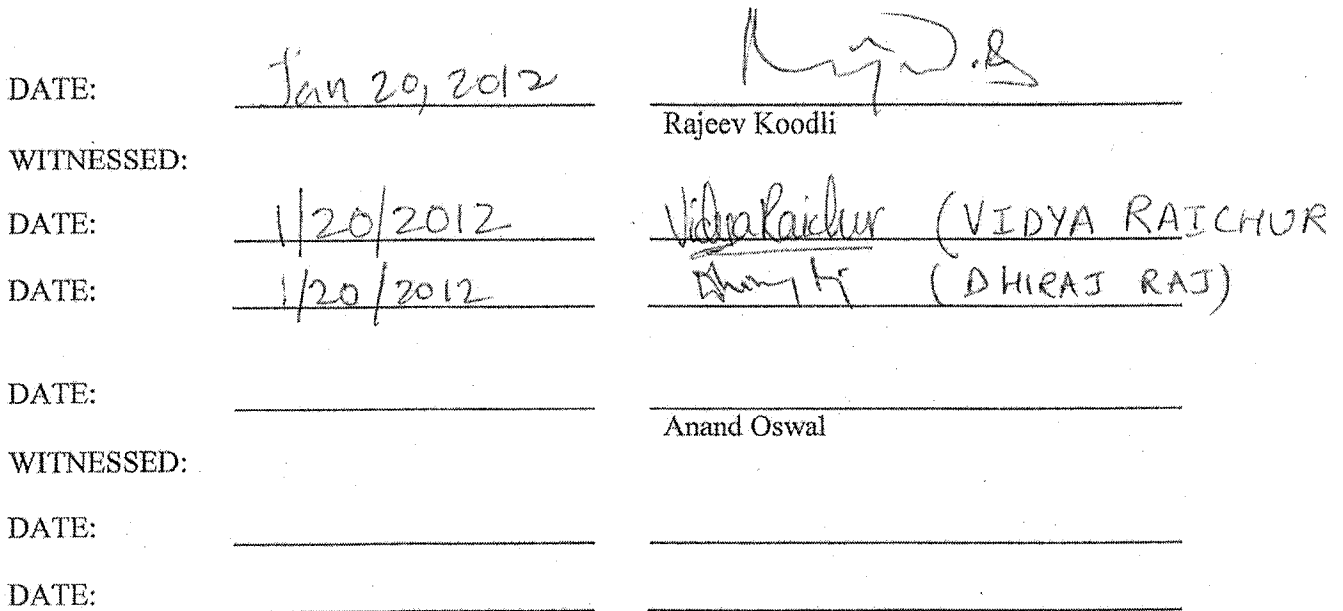 DATE: Jan 20, 2012
Rajeev Koodli
WITNESSED:
DATE: 1/20/2012 Vidya Raichur (VIDYA RAICHUR
DATE: 1/20/2012 (DHIRAJ RAJ)
DATE:
Anand Oswal
WITNESSED:
DATE:
DATE: